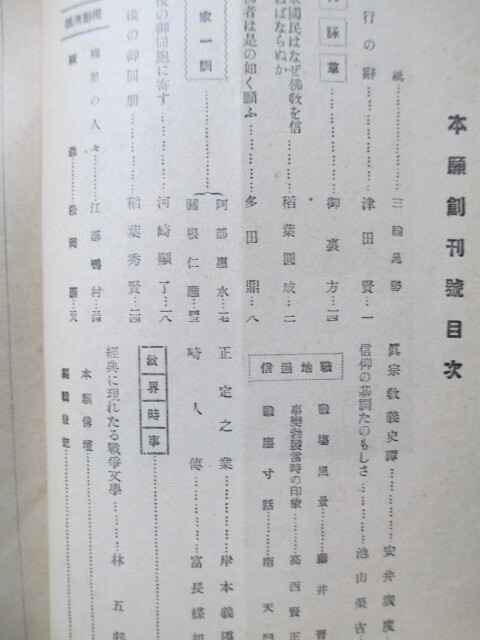 本願創刊號目次
紙 三輪晁勢
行の辭 津田賢一
御裏方
國民はなぜ佛敎を信
ばならぬか 稻葉圓成 二
者は是の如く願ふ 多田鼎 八
家一訓
阿部惠水
關根仁應
後の御同胞に寄す 河崎顯了
後の御同朋 稻葉秀賢
鄕里の人々 江部鴨村
松岡
眞宗敎義史譚 安井廣度
信仰の基調たのもしさ 池山榮吉
戰地通信
戰場風景 藤井
事變勃發當時の印象 高西賢正
戰塵寸話 南天
正定之業 岸本義導
畸人傳 富長蝶如
敎界時事
經典に現れたる戰爭文學 林五邦
本願俳壇
編輯後記